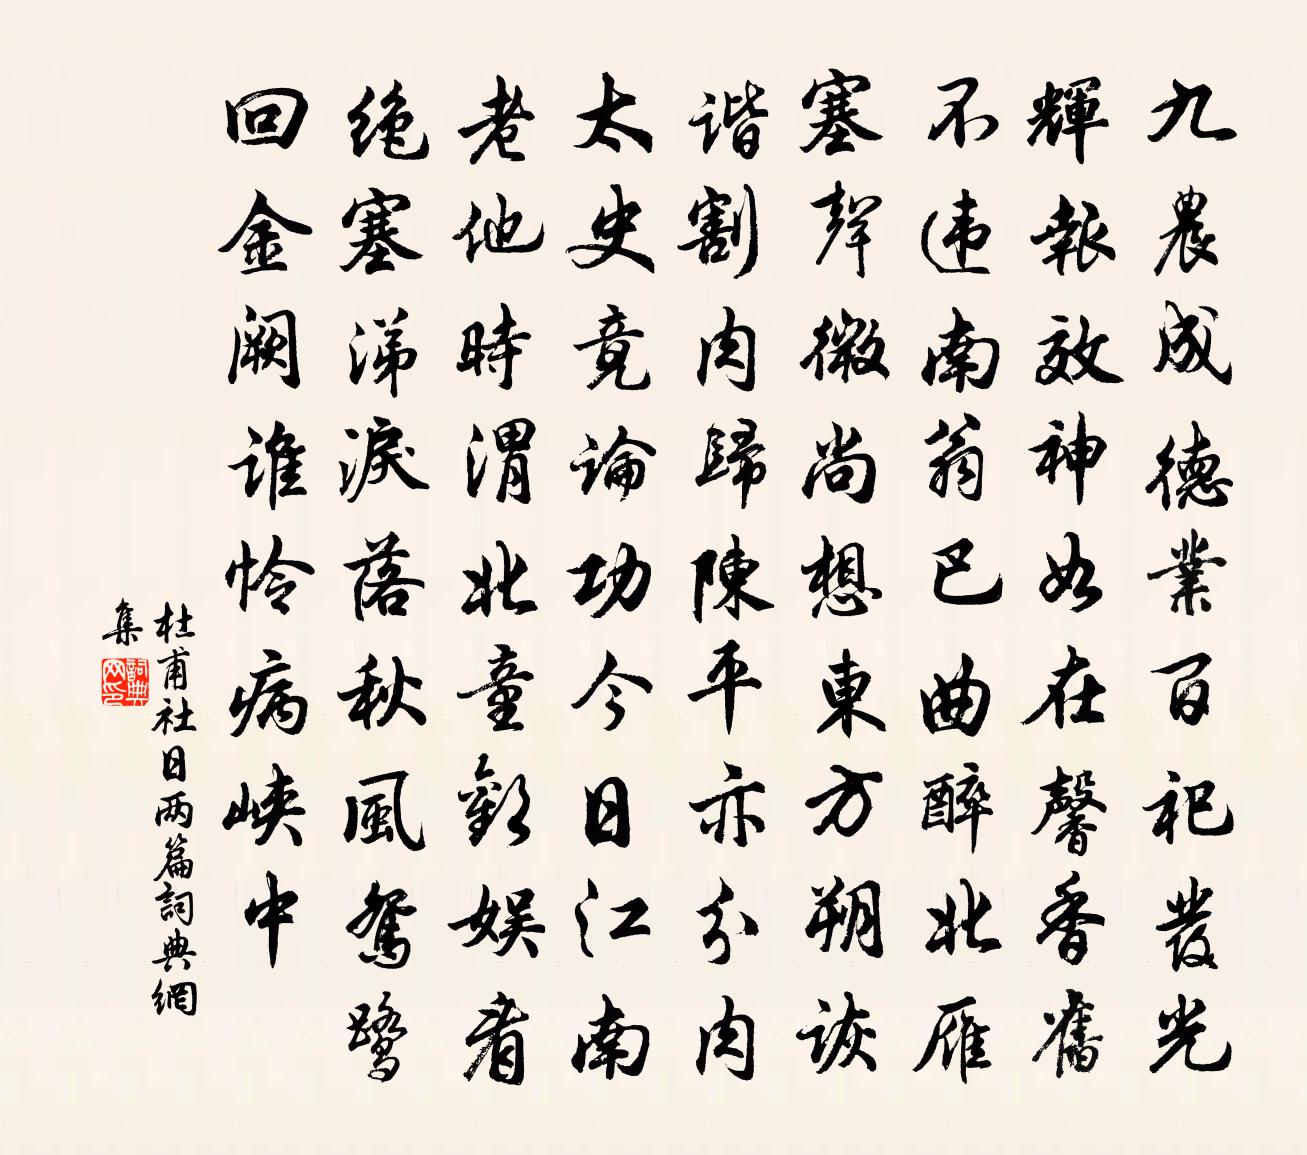 九農成德業百祀發光
輝報效神如在馨香舊
不違南翁巴曲醉北雁
塞聲微尚想東方朔詼
諧割肉歸陳平亦分肉
太史竟論功今日江南
老他時渭北童歡娛看
绝塞涕淚落秋風鴛鹭
回金阙誰怜病峽中
杜甫社日两篇詞典網
集
詞典网印